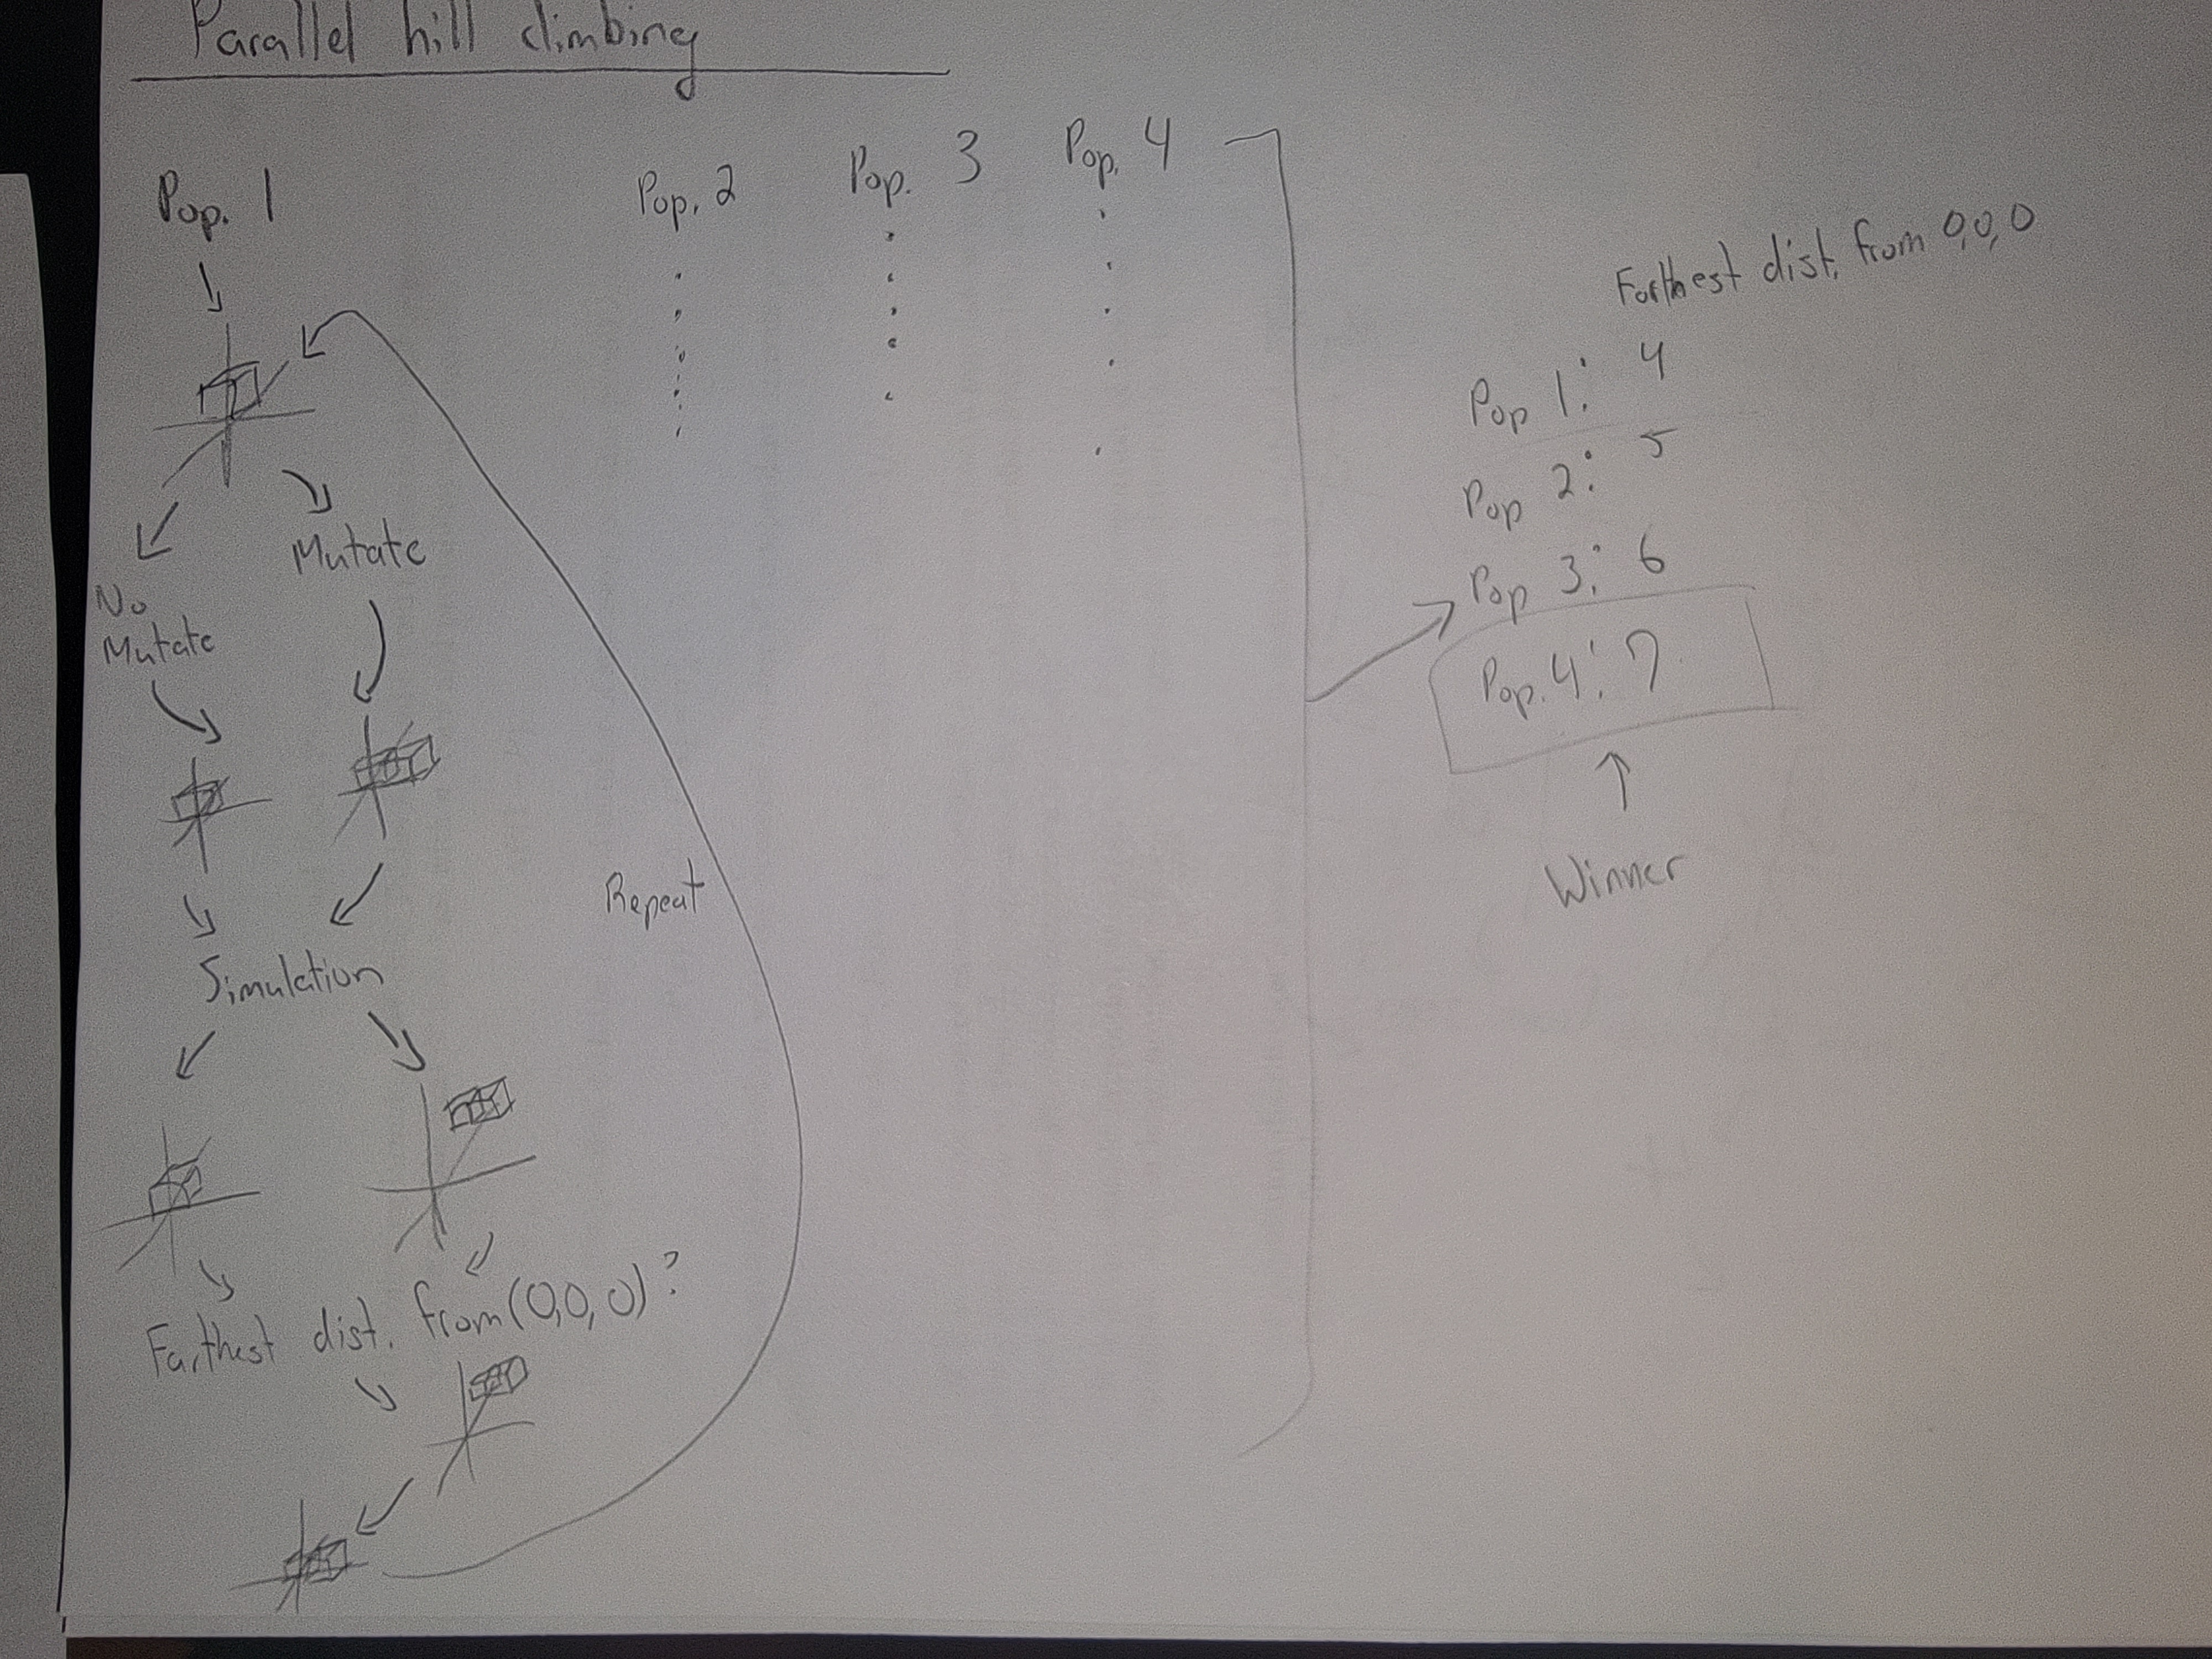 Parallel hill climbing
Pop. 1
Pop. 2
Pop. 3
Pop. 4
Mutate
No
Mutate
Simulation
Farthest dist. from (0,0,0)?
Repeat
Farthest dist. from 0,0,0
Pop 1: 4
Pop 2: 5
Pop 3: 6
Pop. 4: 7
Winner